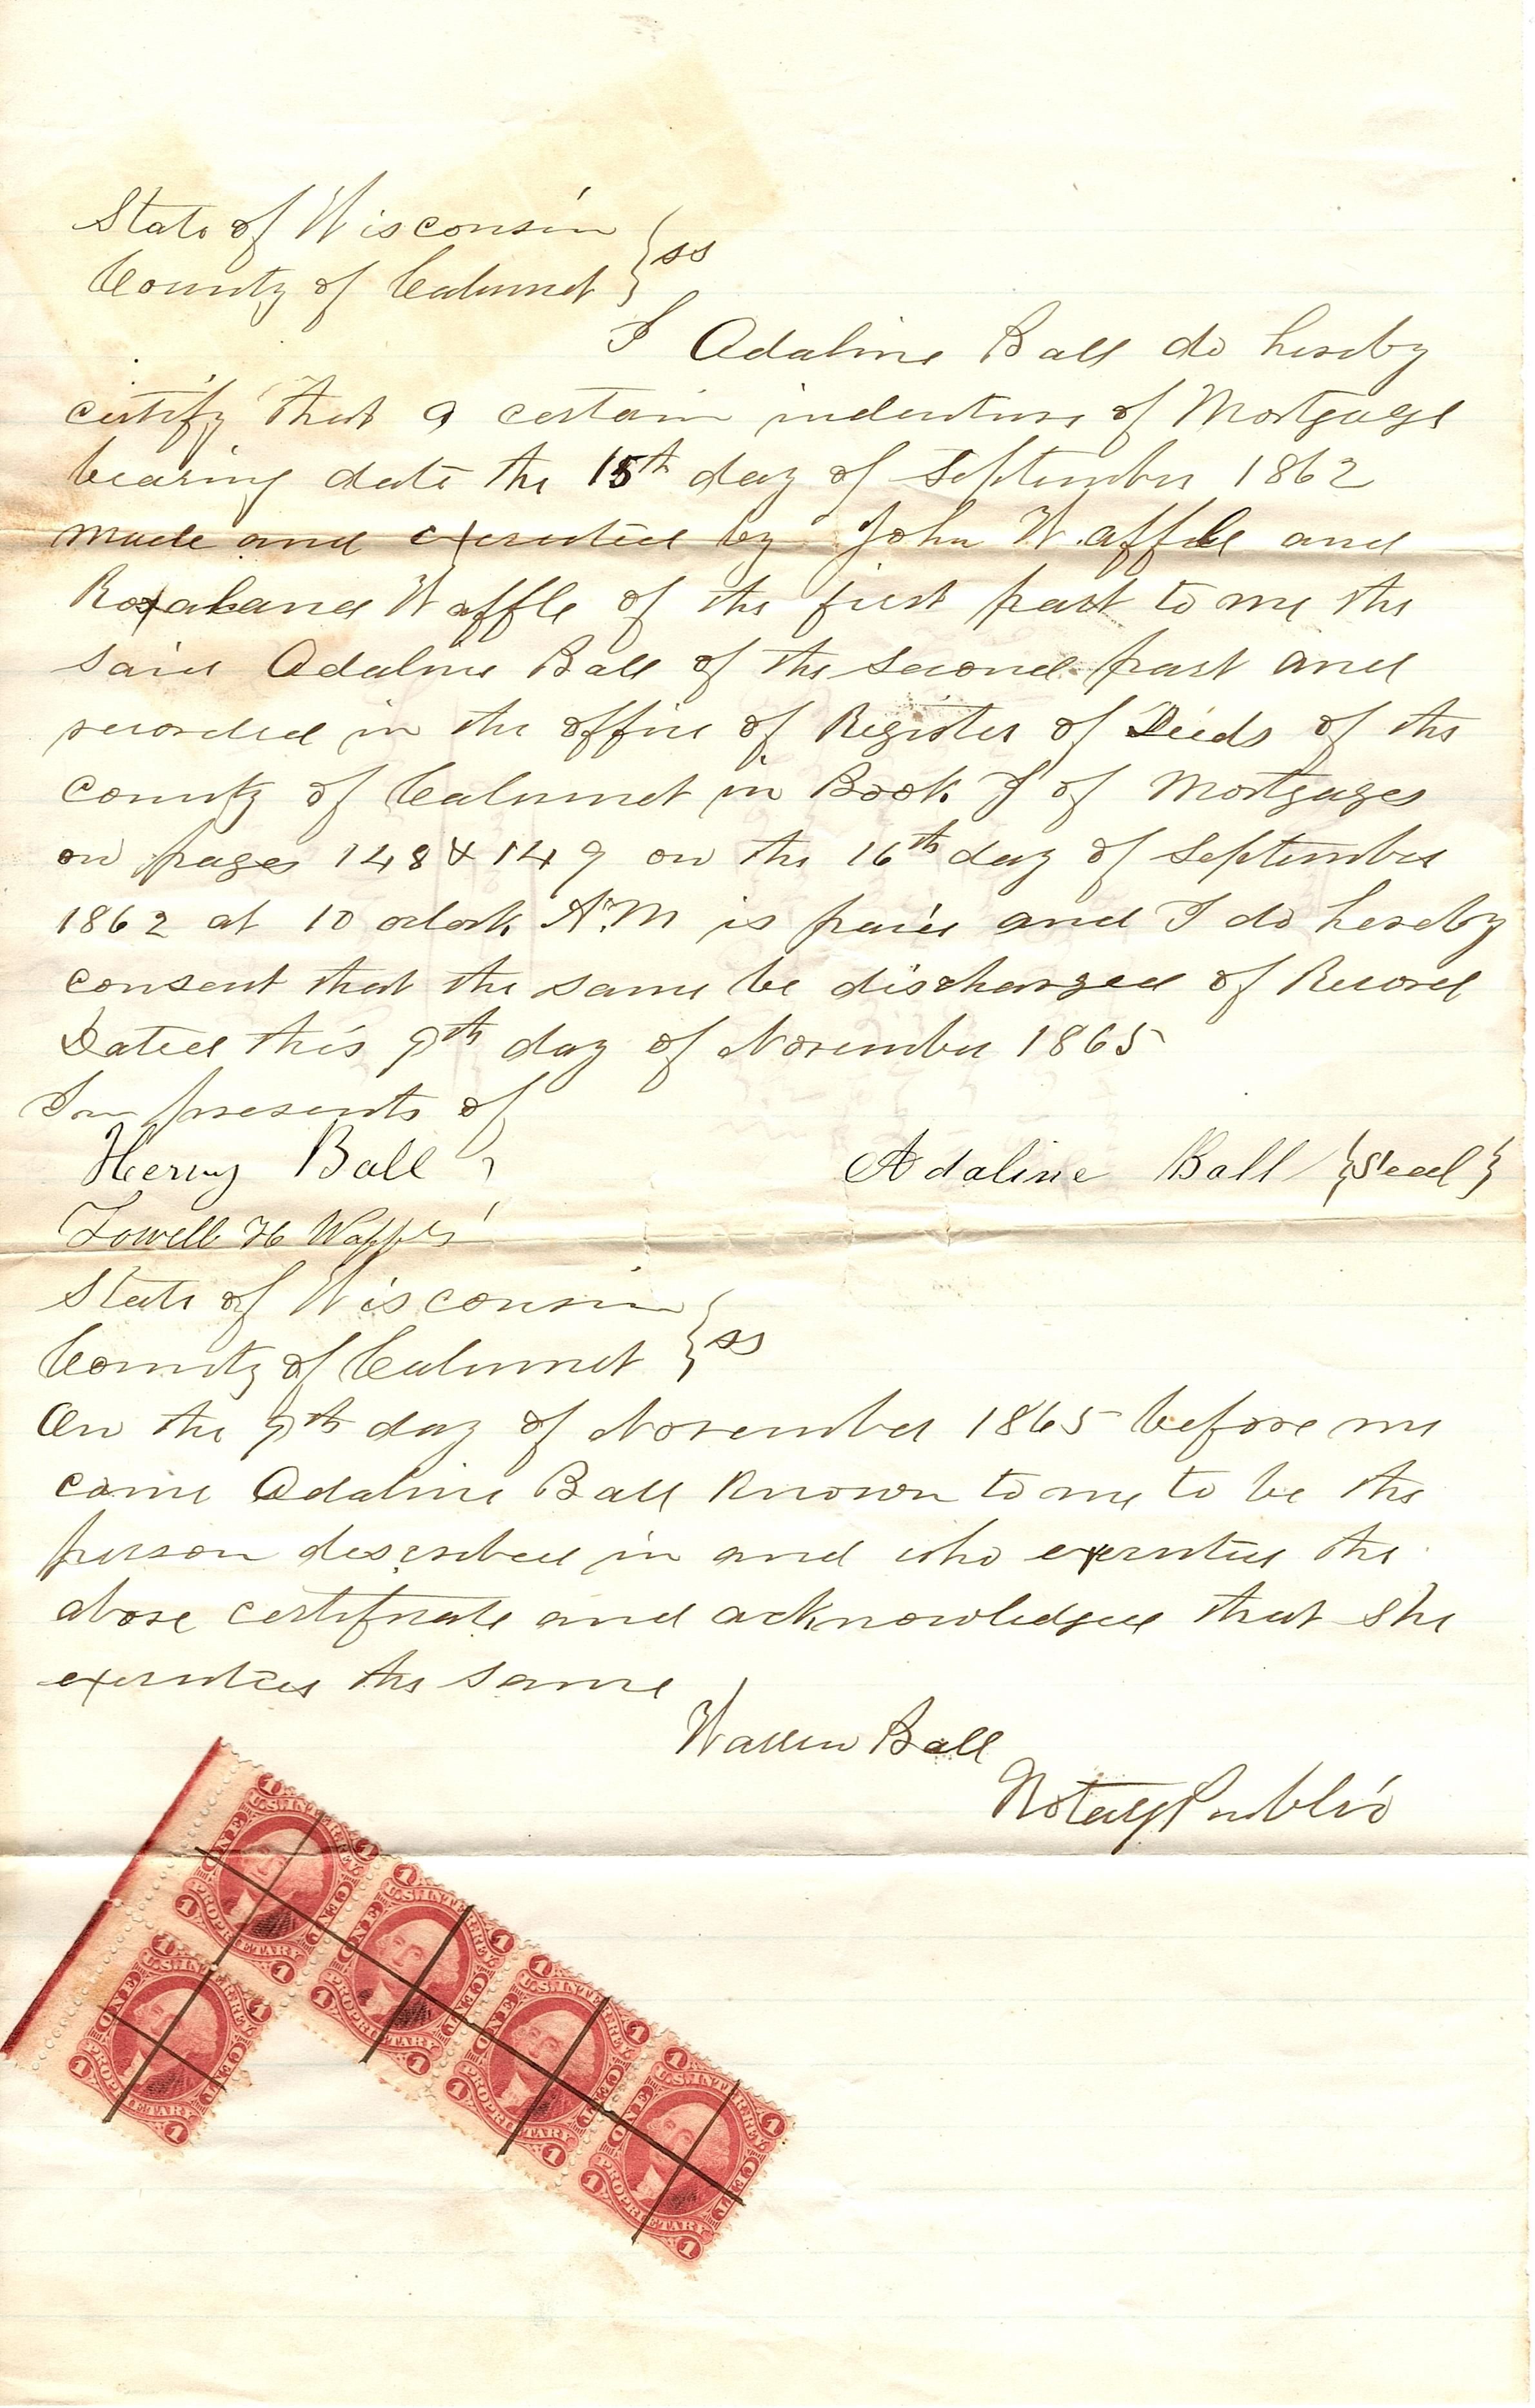 State of Wisconsin
County of Calumet } ss
I Adaline Ball do hereby
certify that a certain indenture of Mortgage
bearing date the 15th day of September 1862
made and executed by John Waffle and
Roxalana Waffle of the first part to me the
said Adaline Ball of the second part and
recorded in the office of Register of Deeds of the
county of Calumet in Book I of Mortgages
on pages 148 & 149 on the 16th day of September
1862 at 10 oclock A.M is paid and I do hereby
consent that the same be discharged of Record
Dated this 9th day of November 1865
In presents of
Henry Ball
Adaline Ball {Seal}
Lowell H Waffle
State of Wisconsin
County of Calumet } ss
On the 9th day of November 1865 before me
came Adaline Ball Known to me to be the
person described in and who executed the
above certificate and acknowledged that she
executed the same
Warren Ball
Notary Public
1 U.S. INTER. REV. 1
ONE CENT
1 PROPRIETARY 1
1 U.S. INTER. REV. 1
ONE CENT
1 PROPRIETARY 1
1 U.S. INTER. REV. 1
ONE CENT
1 PROPRIETARY 1
1 U.S. INTER. REV. 1
ONE CENT
1 PROPRIETARY 1
1 U.S. INTER. REV. 1
ONE CENT
1 PROPRIETARY 1